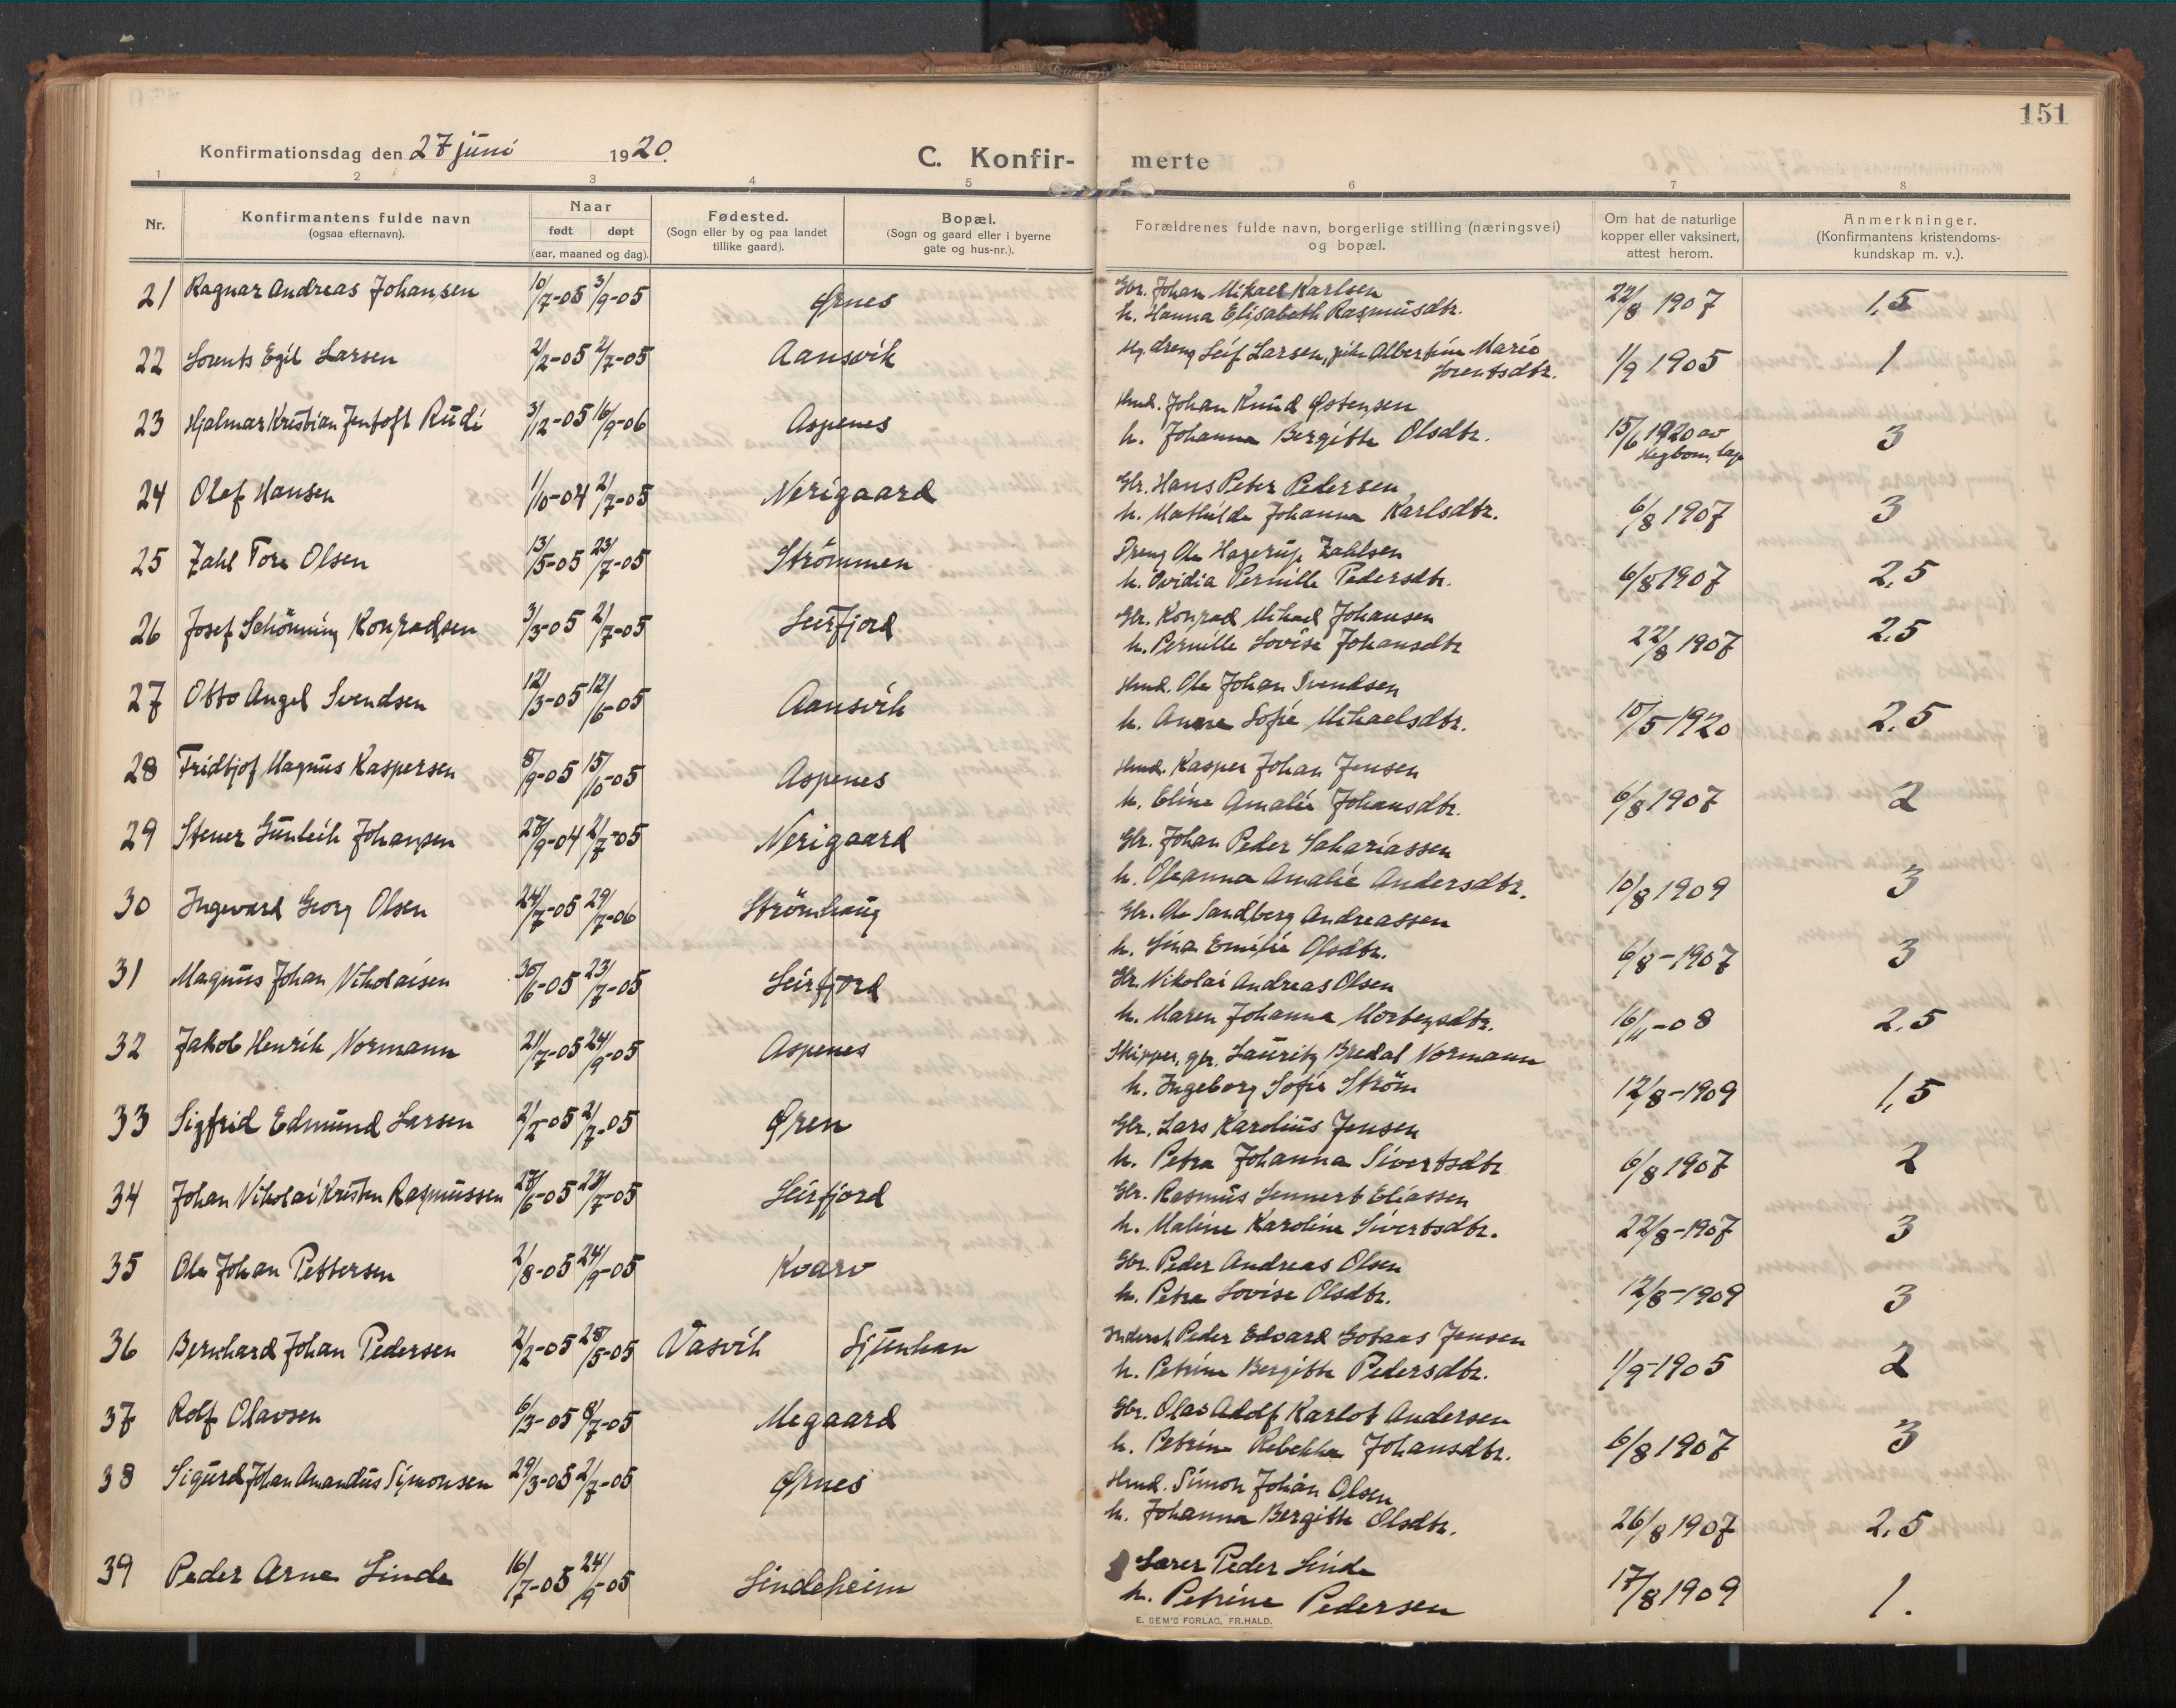 151
Konfirmationsdag den 27 juni 1920.
C. Konfir- merte
1 2 3 4 5 6 7 8
Nr.
Konfirmantens fulde navn
(ogsaa efternavn).
Naar
født døpt
(aar, maaned og dag).
Fødested.
(Sogn eller by og paa landet
tillike gaard).
Bopæl.
(Sogn og gaard eller i byerne
gate og hus-nr.).
Forældrenes fulde navn, borgerlige stilling (næringsvei)
og bopæl.
Om hat de naturlige
kopper eller vaksinert,
attest herom.
Anmerkninger.
(Konfirmantens kristendoms-
kundskap m. v.).
21 Ragnar Andreas Johansen 10/7-05 3/9-05 Ørnes Gbr. Johan Mikael Karlsen 22/8 1907 1,5
h. Hanna Elisabeth Rasmusdtr.
22 Lorents Egil Larsen 2/2-05 2/7-05 Aansvik Ug. dreng Leif Larsen, pike Albertine Marie 1/9 1905 1
Lorentsdtr.
23 Hjalmar Kristian Jentoft Rudi 3/2-05 16/9-06 Aspenes Hmd. Johan Knud Østensen
h. Johanna Bergitte Olsdtr. 15/6 1920 av 3
24 Olef Hansen 1/10-04 2/7-05 Nerigaard Gbr. Hans Peter Pedersen
h. Mathilde Johanna Karlsdtr. 6/8 1907 3
25 Zahl Tore Olsen 13/5-05 23/7-05 Strömmen Dreng Ole Hagerup Zahlsen
h. Ovidia Pernille Pedersdtr. 6/8 1907 2,5
26 Josef Schönning Konradsen 3/3-05 2/7-05 Leirfjord Gbr. Konrad Mikael Johansen
h. Pernille Lovise Johansdtr 22/8 1907 2,5
27 Otto Angel Svendsen 12/3-05 12/6-05 Aansvik Hmd. Ole Johan Svendsen
h. Anne Sofie Mikaelsdtr. 10/5 1920 2,5
28 Fridtjof Magnus Kaspersen 8/9-05 15/10-05 Aspenes Hmd. Kasper Johan Jensen
h. Eline Amalie Johansdtr. 6/8 1907 2
29 Stener Gunleik Johansen 27/9-04 2/7-05 Nerigaard Gbr. Johan Peder Sakariassen
h. Oleanna Amalie Andersdtr. 10/8 1909 3
30 Ingevard Georg Olsen 24/7-05 29/7-06 Strömhaug Gbr. Ole Sandberg Andreassen
h. Lina Emilie Olsdtr. 6/8-1907 3
31 Magnus Johan Nikolaisen 30/6-05 23/7-05 Leirfjord Gbr. Nikolai Andreas Olsen
h. Maren Johanna Mortensdtr. 16/11-08 2,5
32 Jakob Henrik Normann 21/7-05 24/9-05 Aspenes Skipper, gbr. Lauritz Bredal Normann
h. Ingeborg Sofie Ström 12/8-1909 1,5
33 Sigfrid Edmund Larsen 2/2-05 2/7-05 Øren Gbr. Lars Karolius Jensen
h. Petra Johanna Sivertsdtr 6/8 1907 2
34 Johan Nikolai Kristen Rasmussen 27/6-05 23/7-05 Leirfjord Gbr. Rasmus Lennert Eliassen
h. Maline Karoline Sivertsdtr. 22/8-1907 3
35 Ole Johan Pettersen 2/8-05 24/9-05 Kvarv Gbr. Peder Andreas Olsen
h. Petra Lovise Olsdtr. 12/8-1909 3
36 Bernhard Johan Pedersen 2/2-05 28/5-05 Vasvik Sjunhan Inderst Peder Edvard Gotaas Jensen
h. Petrine Bergitte Pedersdtr. 1/9-1905 2
37 Rolf Olavsen 6/3-05 8/7-05 Megaard Gbr. Olav Adolf Karlot Andersen
h. Petrine Rebekka Johansdtr. 6/8 1907 3
38 Sigurd Johan Amandus Simonsen 29/3-05 2/7-05 Ørnes Hmd. Simon Johan Olsen
h. Johanna Bergitte Olsdtr. 26/8 1907 2,5
39 Peder Arne Linde 16/7-05 24/9-05 Lindeheim Lærer Peder Linde
h. Petrine Pedersen 17/8 1909 1.
E. SEM'S FORLAG, FR.HALD.